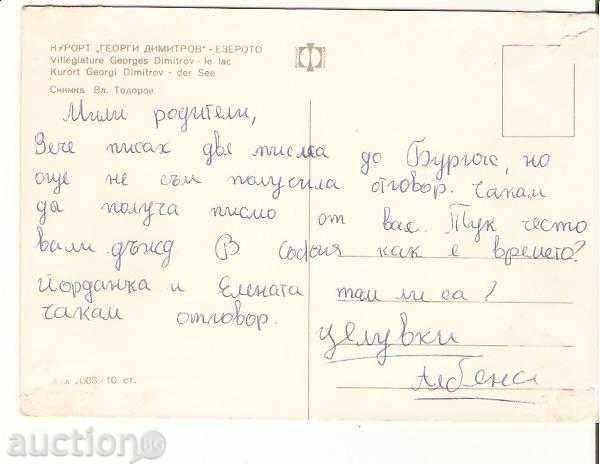 КУРОРТ „ГЕОРГИ ДИМИТРОВ" - ЕЗЕРОТО
Villégiature Georges Dimitrov - le lac
Kurort Georgi Dimitrov - der See
Снимка Вл. Тодоров
Мили родители,
Вече писах две писма до Бургас, но
още не съм получила отговор. Чакам
да получа писмо от вас. Тук често
вали дъжд В София как е времето?
Йорданка и Елената там ли са?
чакам отговор.
целувки
Албена
10 ст.
auction BG